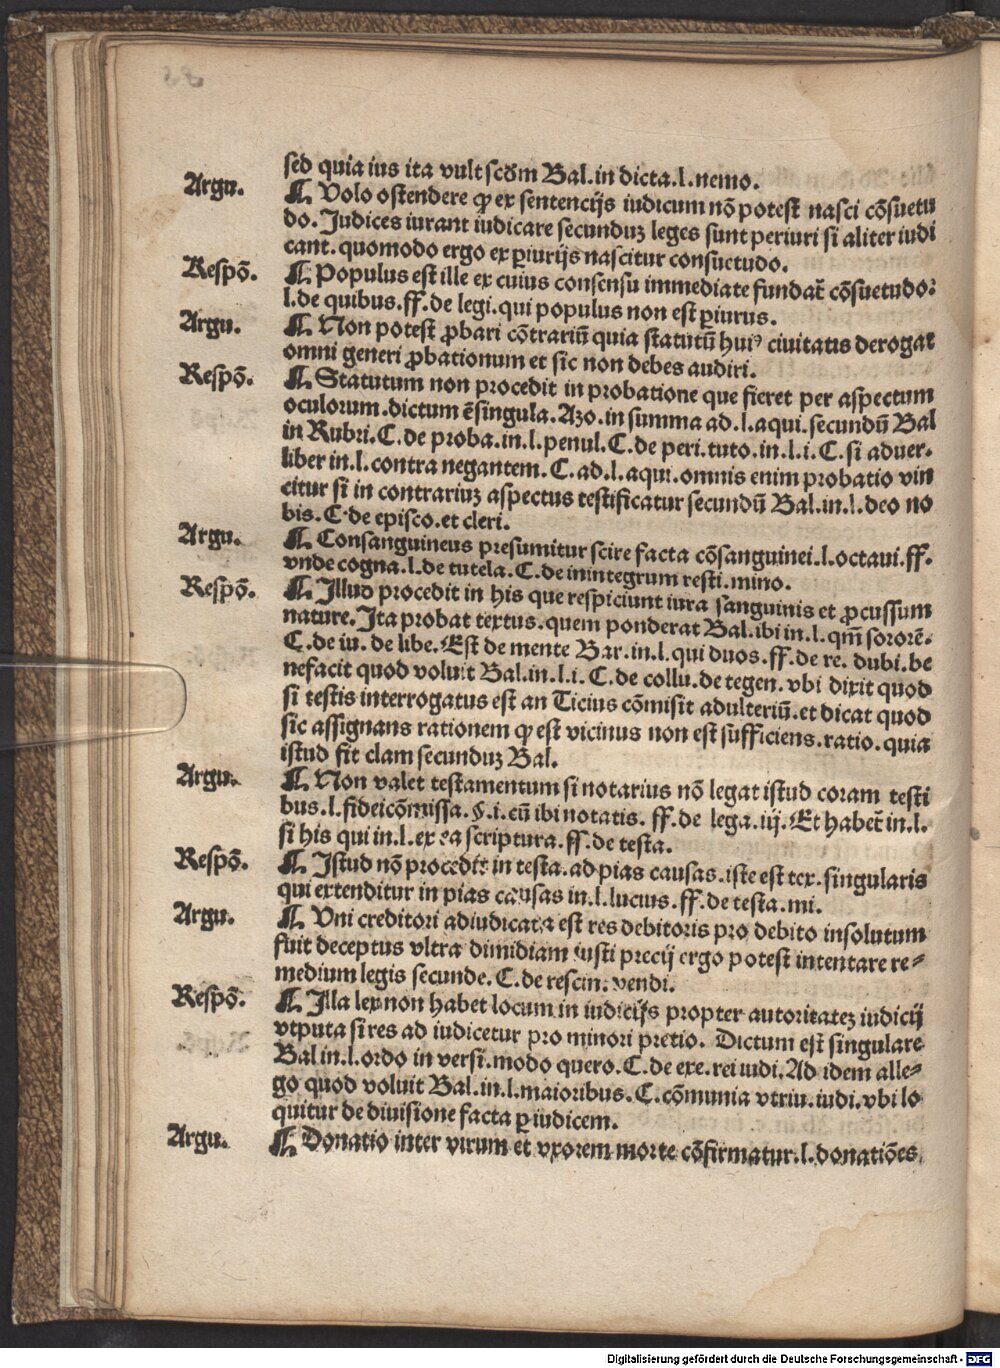 sed quia ius ita vult scd̄m Bal. in dicta. l. nemo.
Argu. ¶ Volo ostendere ꝙ ex sentencijs iudicum nō potest nasci cōsuetu
do. Judices iurant iudicare secunduz leges sunt periuri si aliter iudi
cant. quomodo ergo ex ꝑiurijs nascitur consuetudo.
Respō. ¶ Populus est ille ex cuius consensu immediate fundat̄ cōsuetudo:
l. de quibus. ff. de legi. qui populus non est ꝑiurus.
Argu. ¶ Non potest ꝓbari cōtrariū quia statutū huiꝰ ciuitatis derogat
omni generi ꝓbationum et sic non debes audiri.
Respō. ¶ Statutum non procedit in probatione que fieret per aspectum
oculorum. dictum ē singula. Azo. in summa ad. l. aqui. secundū Bal
in Rubri. C. de proba. in. l. penul. C. de peri. tuto. in. l. i. C. si aduer-
liber in. l. contra negantem. C. ad. l. aqui. omnis enim probatio vin
citur si in contrariuz aspectus testificatur secundū Bal. in. l. deo no
bis. C. de episco. et cleri.
Argu. ¶ Consanguineus presumitur scire facta cōsanguinei. l. octaui. ff.
vnde cogna. l. de tutela. C. de in integrum resti. mino.
Respō. ¶ Illud procedit in his que respiciunt iura sanguinis et ꝓcussum
nature. Ita probat textus. quem ponderat Bal. ibi in. l. qm̄ sororē.
C. de iu. de libe. Est de mente Bar. in. l. qui duos. ff. de re. dubi. be
nefacit quod voluit Bal. in. l. i. C. de collu. de tegen. vbi dixit quod
si testis interrogatus est an Ticius cōmisit adulteriū. et dicat quod
sic assignans rationem ꝙ est vicinus non est sufficiens. ratio. quia
istud fit clam secunduz Bal.
Argu. ¶ Non valet testamentum si notarius nō legat istud coram testi
bus. l. fideicōmissa. §. i. cū ibi notatis. ff. de lega. iij. Et habet̄ in. l.
si his qui in. l. ex ea scriptura. ff. de testa.
Respō. ¶ Istud nō procedit in testa. ad pias causas. iste est tex. singularis
qui extenditur in pias causas in. l. lucius. ff. de testa. mi.
Argu. ¶ Vni creditori adiudicata est res debitoris pro debito insolutum
fuit deceptus vltra dimidiam iusti precij ergo potest intentare re-
medium legis secunde. C. de rescin. vendi.
Respō. ¶ Illa lex non habet locum in iudicijs propter autoritatez iudicij
vtputa si res ad iudicetur pro minori pretio. Dictum est singulare
Bal in. l. ordo in versi. modo quero. C. de exe. rei iudi. Ad idem alle-
go quod voluit Bal. in. l. maioribus. C. cōmunia vtriu. iudi. vbi lo
quitur de diuisione facta ꝑ iudicem.
Argu. ¶ Donatio inter virum et vxorem morte cōfirmatur. l. donatiōes.
Digitalisierung gefördert durch die Deutsche Forschungsgemeinschaft - DFG